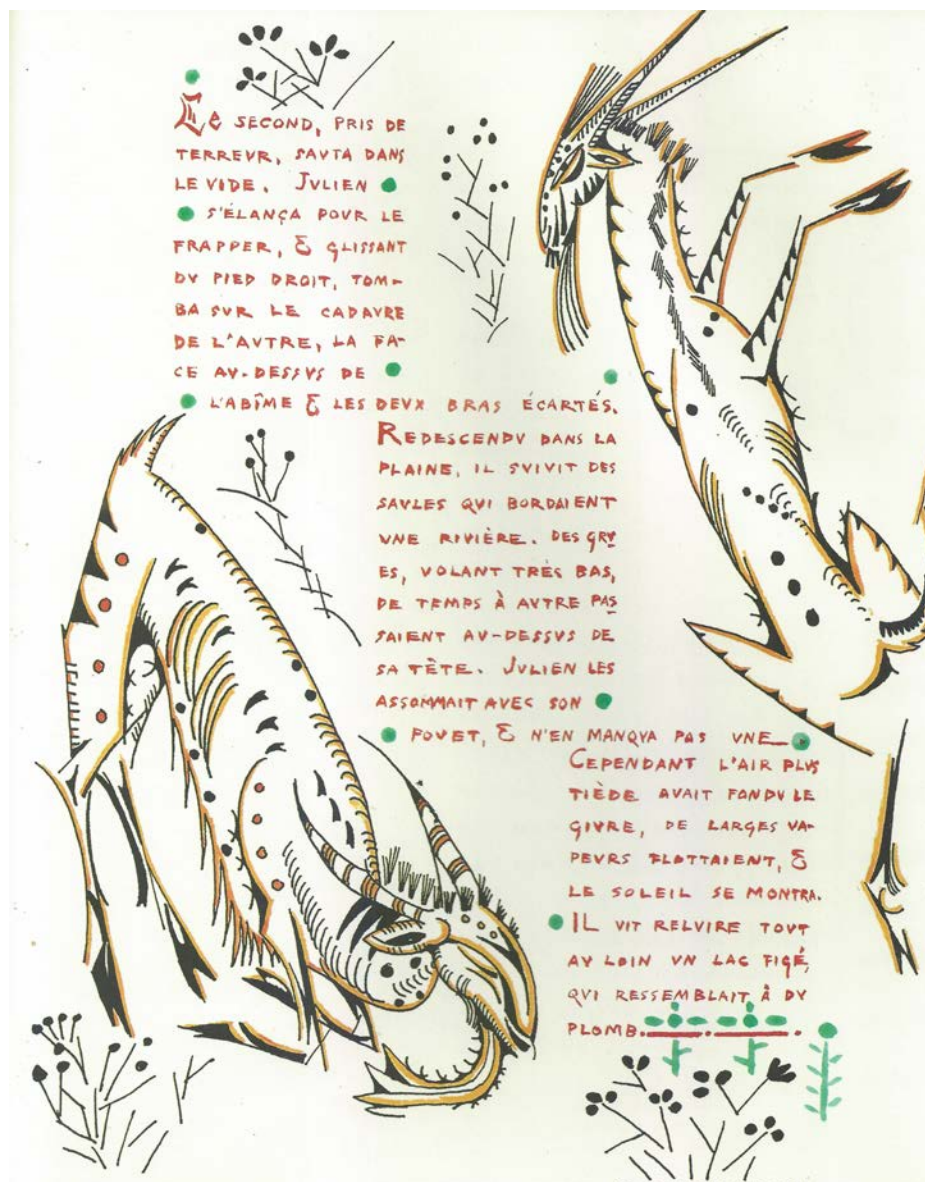 Le SECOND, PRIS DE
TERREVR, SAVTA DANS
LE VIDE. JULIEN
S'ÉLANÇA POVR LE
FRAPPER, & GLISSANT
DV PIED DROIT, TOM-
BA SVR LE CADAVRE
DE L'AVTRE, LA FA-
CE AV-DESSVS DE
L'ABÎME & LES DEVX BRAS ÉCARTÉS.
REDESCENDV DANS LA
PLAINE, IL SVIVIT DES
SAVLES QVI BORDAIENT
VNE RIVIÈRE. DES GRV
ES, VOLANT TRÈS BAS,
DE TEMPS À AVTRE PAS
SAIENT AV-DESSVS DE
SA TÊTE. JULIEN LES
ASSOMMAIT AVEC SON
FOVET, & N'EN MANQVA PAS VNE
CEPENDANT L'AIR PLVS
TIÈDE AVAIT FONDV LE
GIVRE, DE LARGES VA-
PEVRS FLOTTAIENT, &
LE SOLEIL SE MONTRA.
IL VIT RELVIRE TOVT
AV LOIN VN LAC FIGÉ,
QVI RESSEMBLAIT À DV
PLOMB.